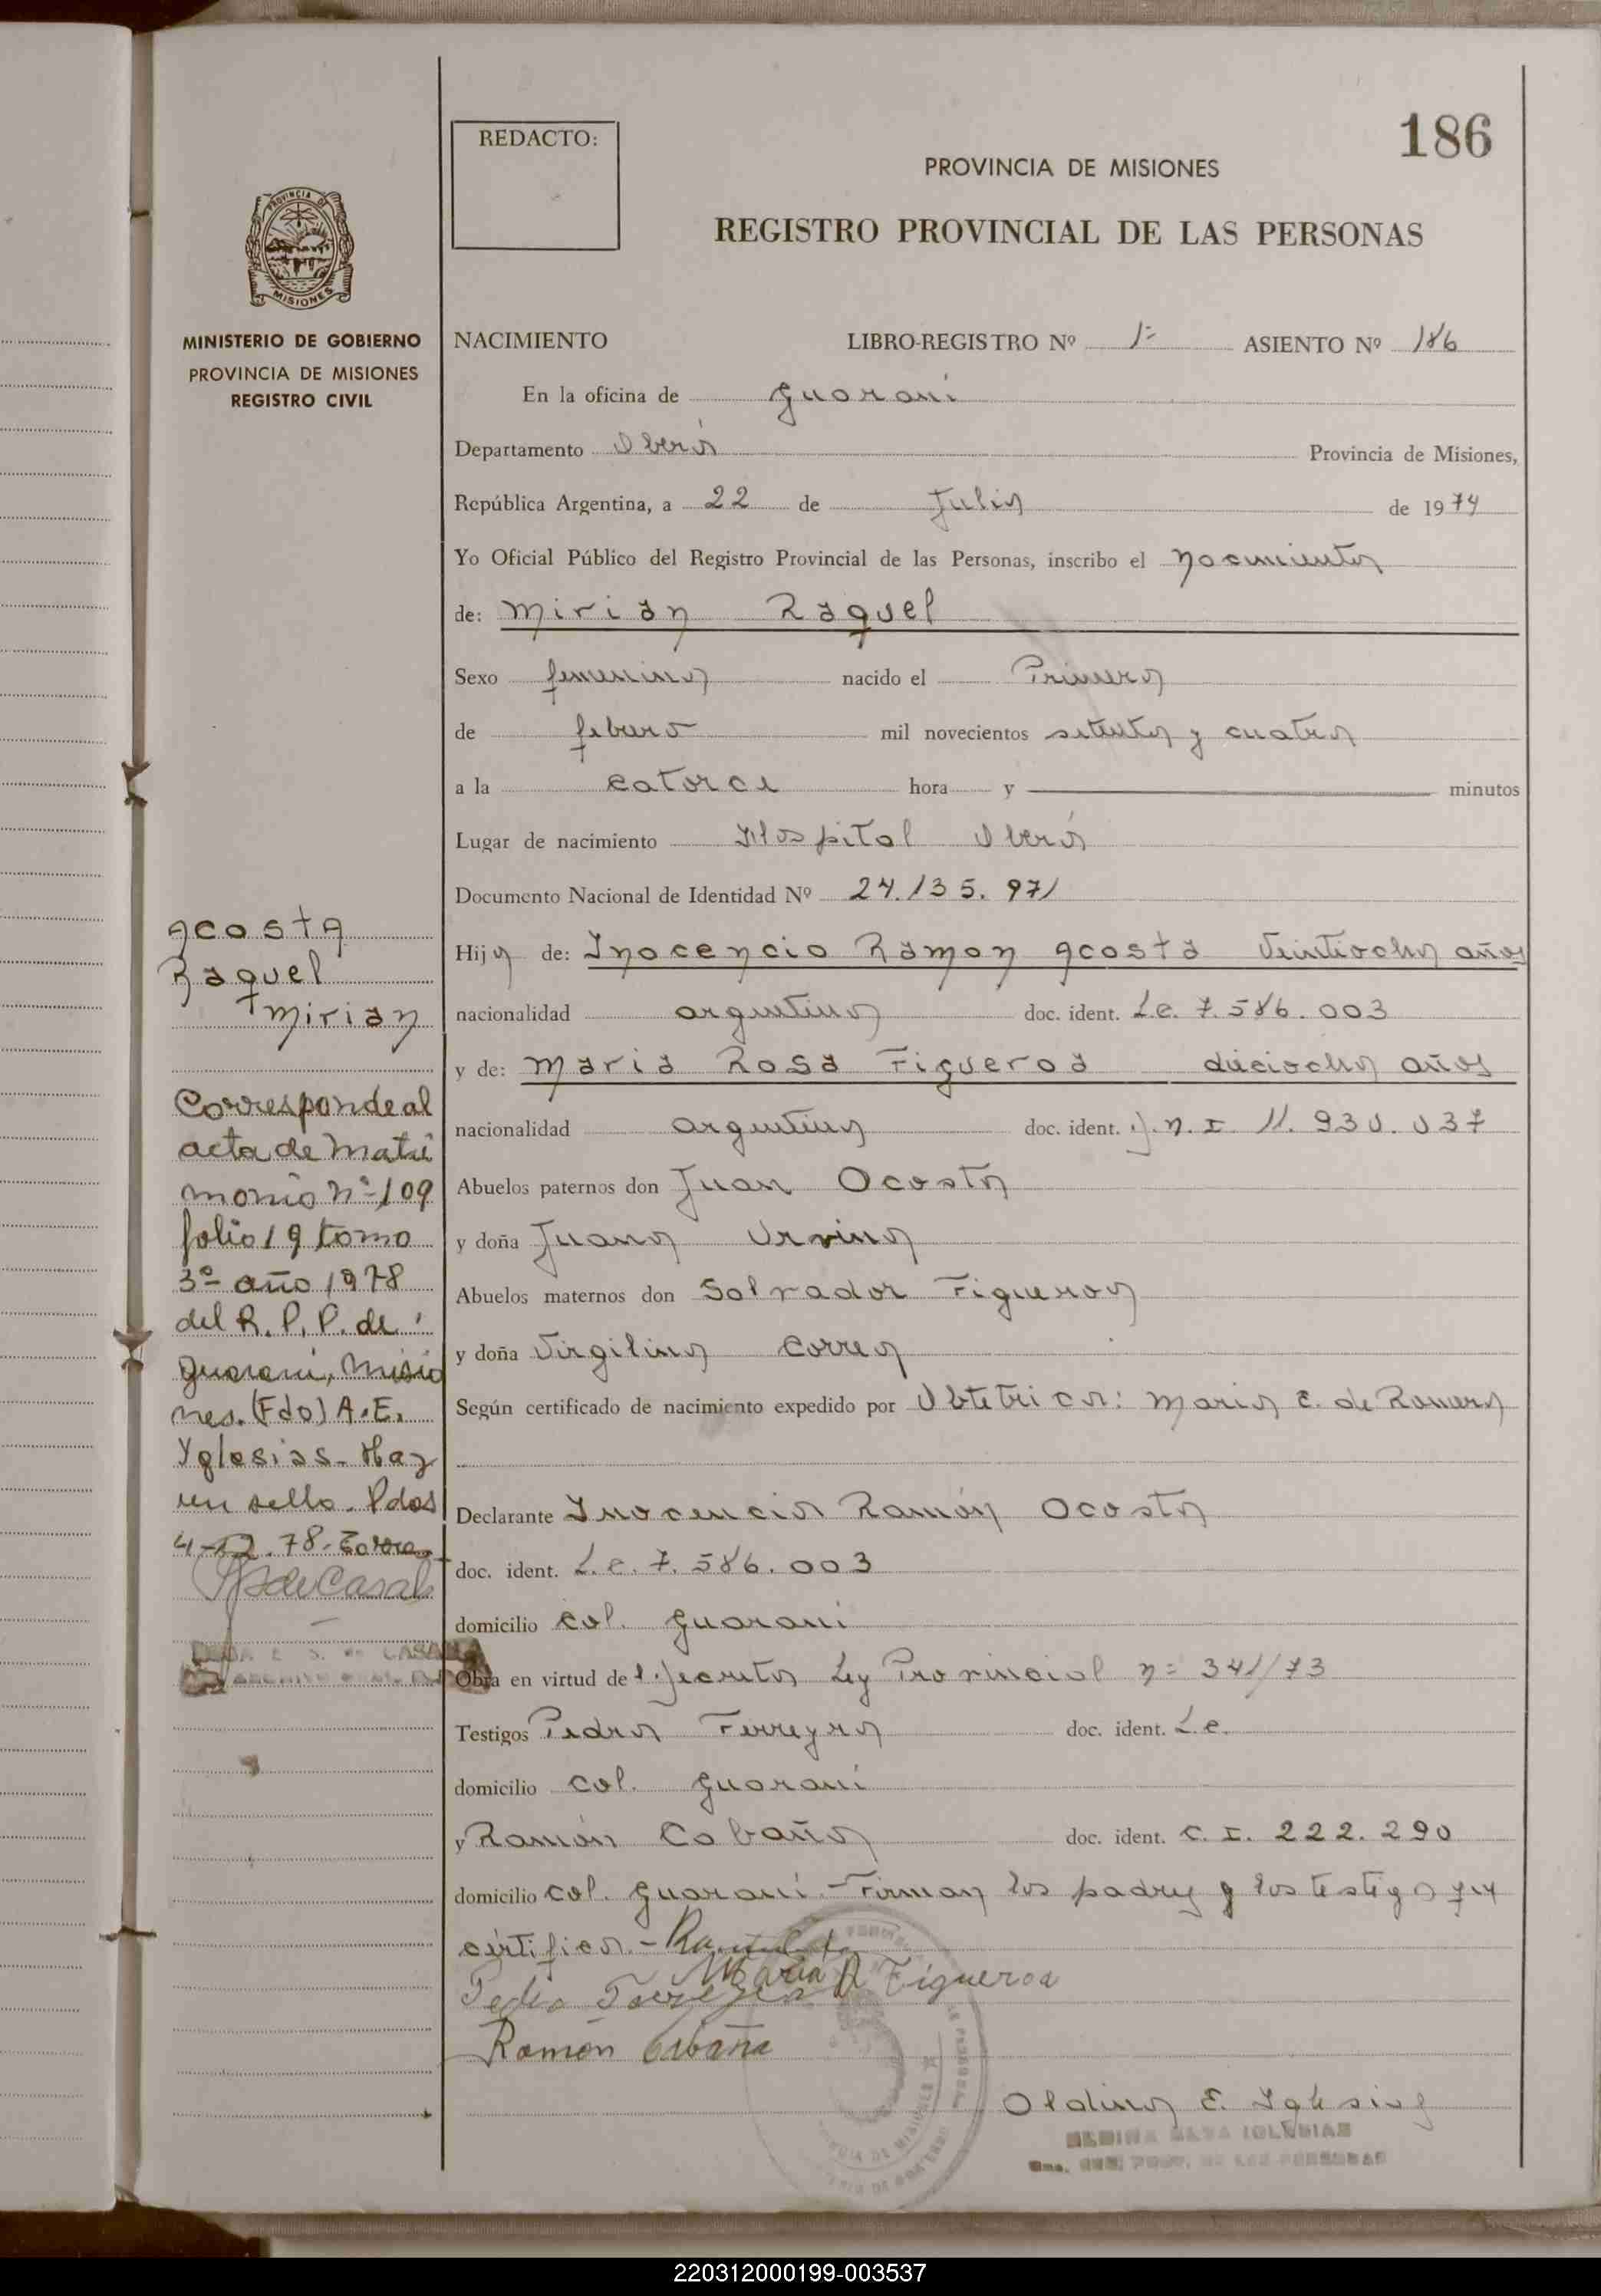 186
REDACTO:
PROVINCIA DE MISIONES
REGISTRO PROVINCIAL DE LAS PERSONAS
PROVINCIA DE
MISIONES
MINISTERIO DE GOBIERNO
PROVINCIA DE MISIONES
REGISTRO CIVIL
NACIMIENTO LIBRO-REGISTRO Nº 1º ASIENTO Nº 186
En la oficina de Guaraní
Departamento Oberá Provincia de Misiones,
República Argentina, a 22 de Julio de 1974
Yo Oficial Público del Registro Provincial de las Personas, inscribo el nacimiento
de: Mirian Raquel
Sexo femenino nacido el Primero
de febrero mil novecientos setenta y cuatro
a la catorce hora y minutos
Lugar de nacimiento Hospital Oberá
Documento Nacional de Identidad Nº 24.135.971
Hija de: Inocencio Ramon Acosta Veintiocho años
nacionalidad argentino doc. ident. L.E. 7.586.003
y de: Maria Rosa Figueroa dieciocho años
nacionalidad argentina doc. ident. D.N.I. 11.930.037
Abuelos paternos don Juan Acosta
y doña Juana
Abuelos maternos don Salvador Figueroa
y doña Virgilina Correa
Según certificado de nacimiento expedido por Obtetrica: Maria E. de
Declarante Inocencio Ramón Acosta
doc. ident. L.E. 7.586.003
domicilio Col. Guaraní
Obra en virtud del Decreto Ley Provincial nº 341/73
Testigos Pedro Ferreyra doc. ident. L.E.
domicilio Col. Guaraní
y Ramón Cabaña doc. ident. C.I. 222.290
domicilio Col. Guaraní - Firman los padres y los testigos que
certifico.-
Maria R Figueroa
Pedro Ferreyra
Ramón Cabaña
Aldina E. Iglesias
Acosta
Raquel
Mirian
Corresponde al
acta de Matri
monio nº 109
folio 19 tomo
3º año 1978
del R.P.P. de
Guaraní, Misio
nes. (Fdo) A.E.
Yglesias. Hay
un sello. Pdas
4-12.78.
de Casals
220312000199-003537